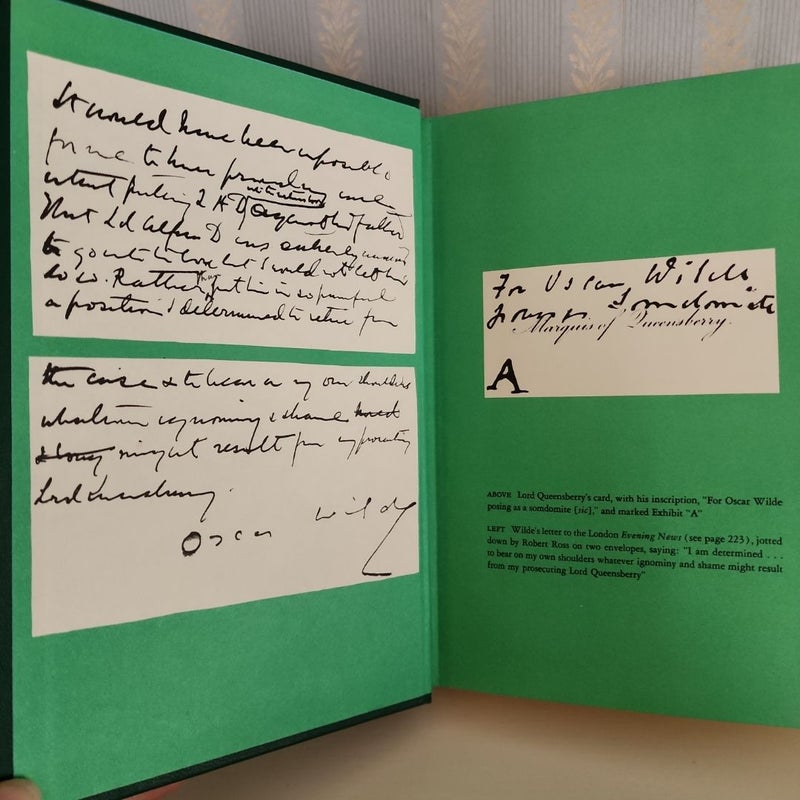 It would have been impossible
for me to have proved my case
without putting Ld A D in the witness box against his father
Ld Alfred D was extremely anxious
to go into the box but I would not let him
do so. Rather than put him in so painful
a position I determined to retire from
the case & to bear on my own shoulders
whatever ignominy & shame
might result from my prosecuting
Lord Queensberry.
Oscar Wilde
For Oscar Wilde
posing somdomite
Marquis of Queensberry.
A
ABOVE Lord Queensberry's card, with his inscription, "For Oscar Wilde
posing as a somdomite [sic]," and marked Exhibit "A"
LEFT Wilde's letter to the London Evening News (see page 223), jotted
down by Robert Ross on two envelopes, saying: "I am determined . . .
to bear on my own shoulders whatever ignominy and shame might result
from my prosecuting Lord Queensberry"